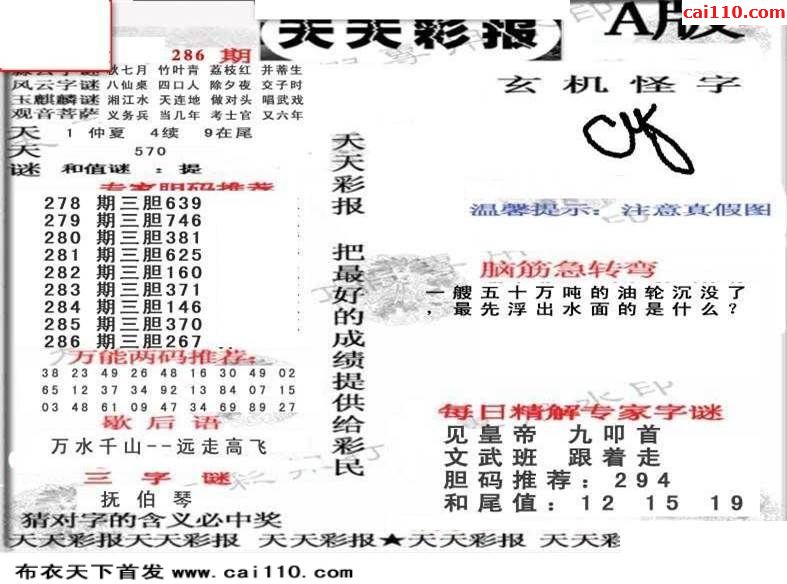 cai110.com
天天彩报
A版
286 期
秋七月 竹叶青 荔枝红 并蒂生
风云字谜 八仙桌 四口人 除夕夜 交子时
玉麒麟谜 湘江水 天连地 做对头 唱武戏
观音菩萨 义务兵 当几年 考士官 又六年
天 1 仲夏 4续 9在尾
天 570
谜 和值谜 : 提
专家胆码推荐
278 期三胆639
279 期三胆746
280 期三胆381
281 期三胆625
282 期三胆160
283 期三胆371
284 期三胆146
285 期三胆370
286 期三胆267
万能两码推荐:
38 23 49 26 48 16 30 49 02
65 12 37 34 92 13 84 07 15
03 48 61 09 47 34 69 89 27
歇后语
万水千山--远走高飞
三字谜
抚伯琴
猜对字的含义必中奖
天天彩报 把最好的成绩提供给彩民
玄机怪字
温馨提示: 注意真假图
脑筋急转弯
一艘五十万吨的油轮沉没了
，最先浮出水面的是什么？
每日精解专家字谜
见皇帝 九叩首
文武班 跟着走
胆码推荐: 294
和尾值: 12 15 19
天天彩报天天彩报 天天彩报★天天彩报 天天彩
布衣天下首发 www.cai110.com